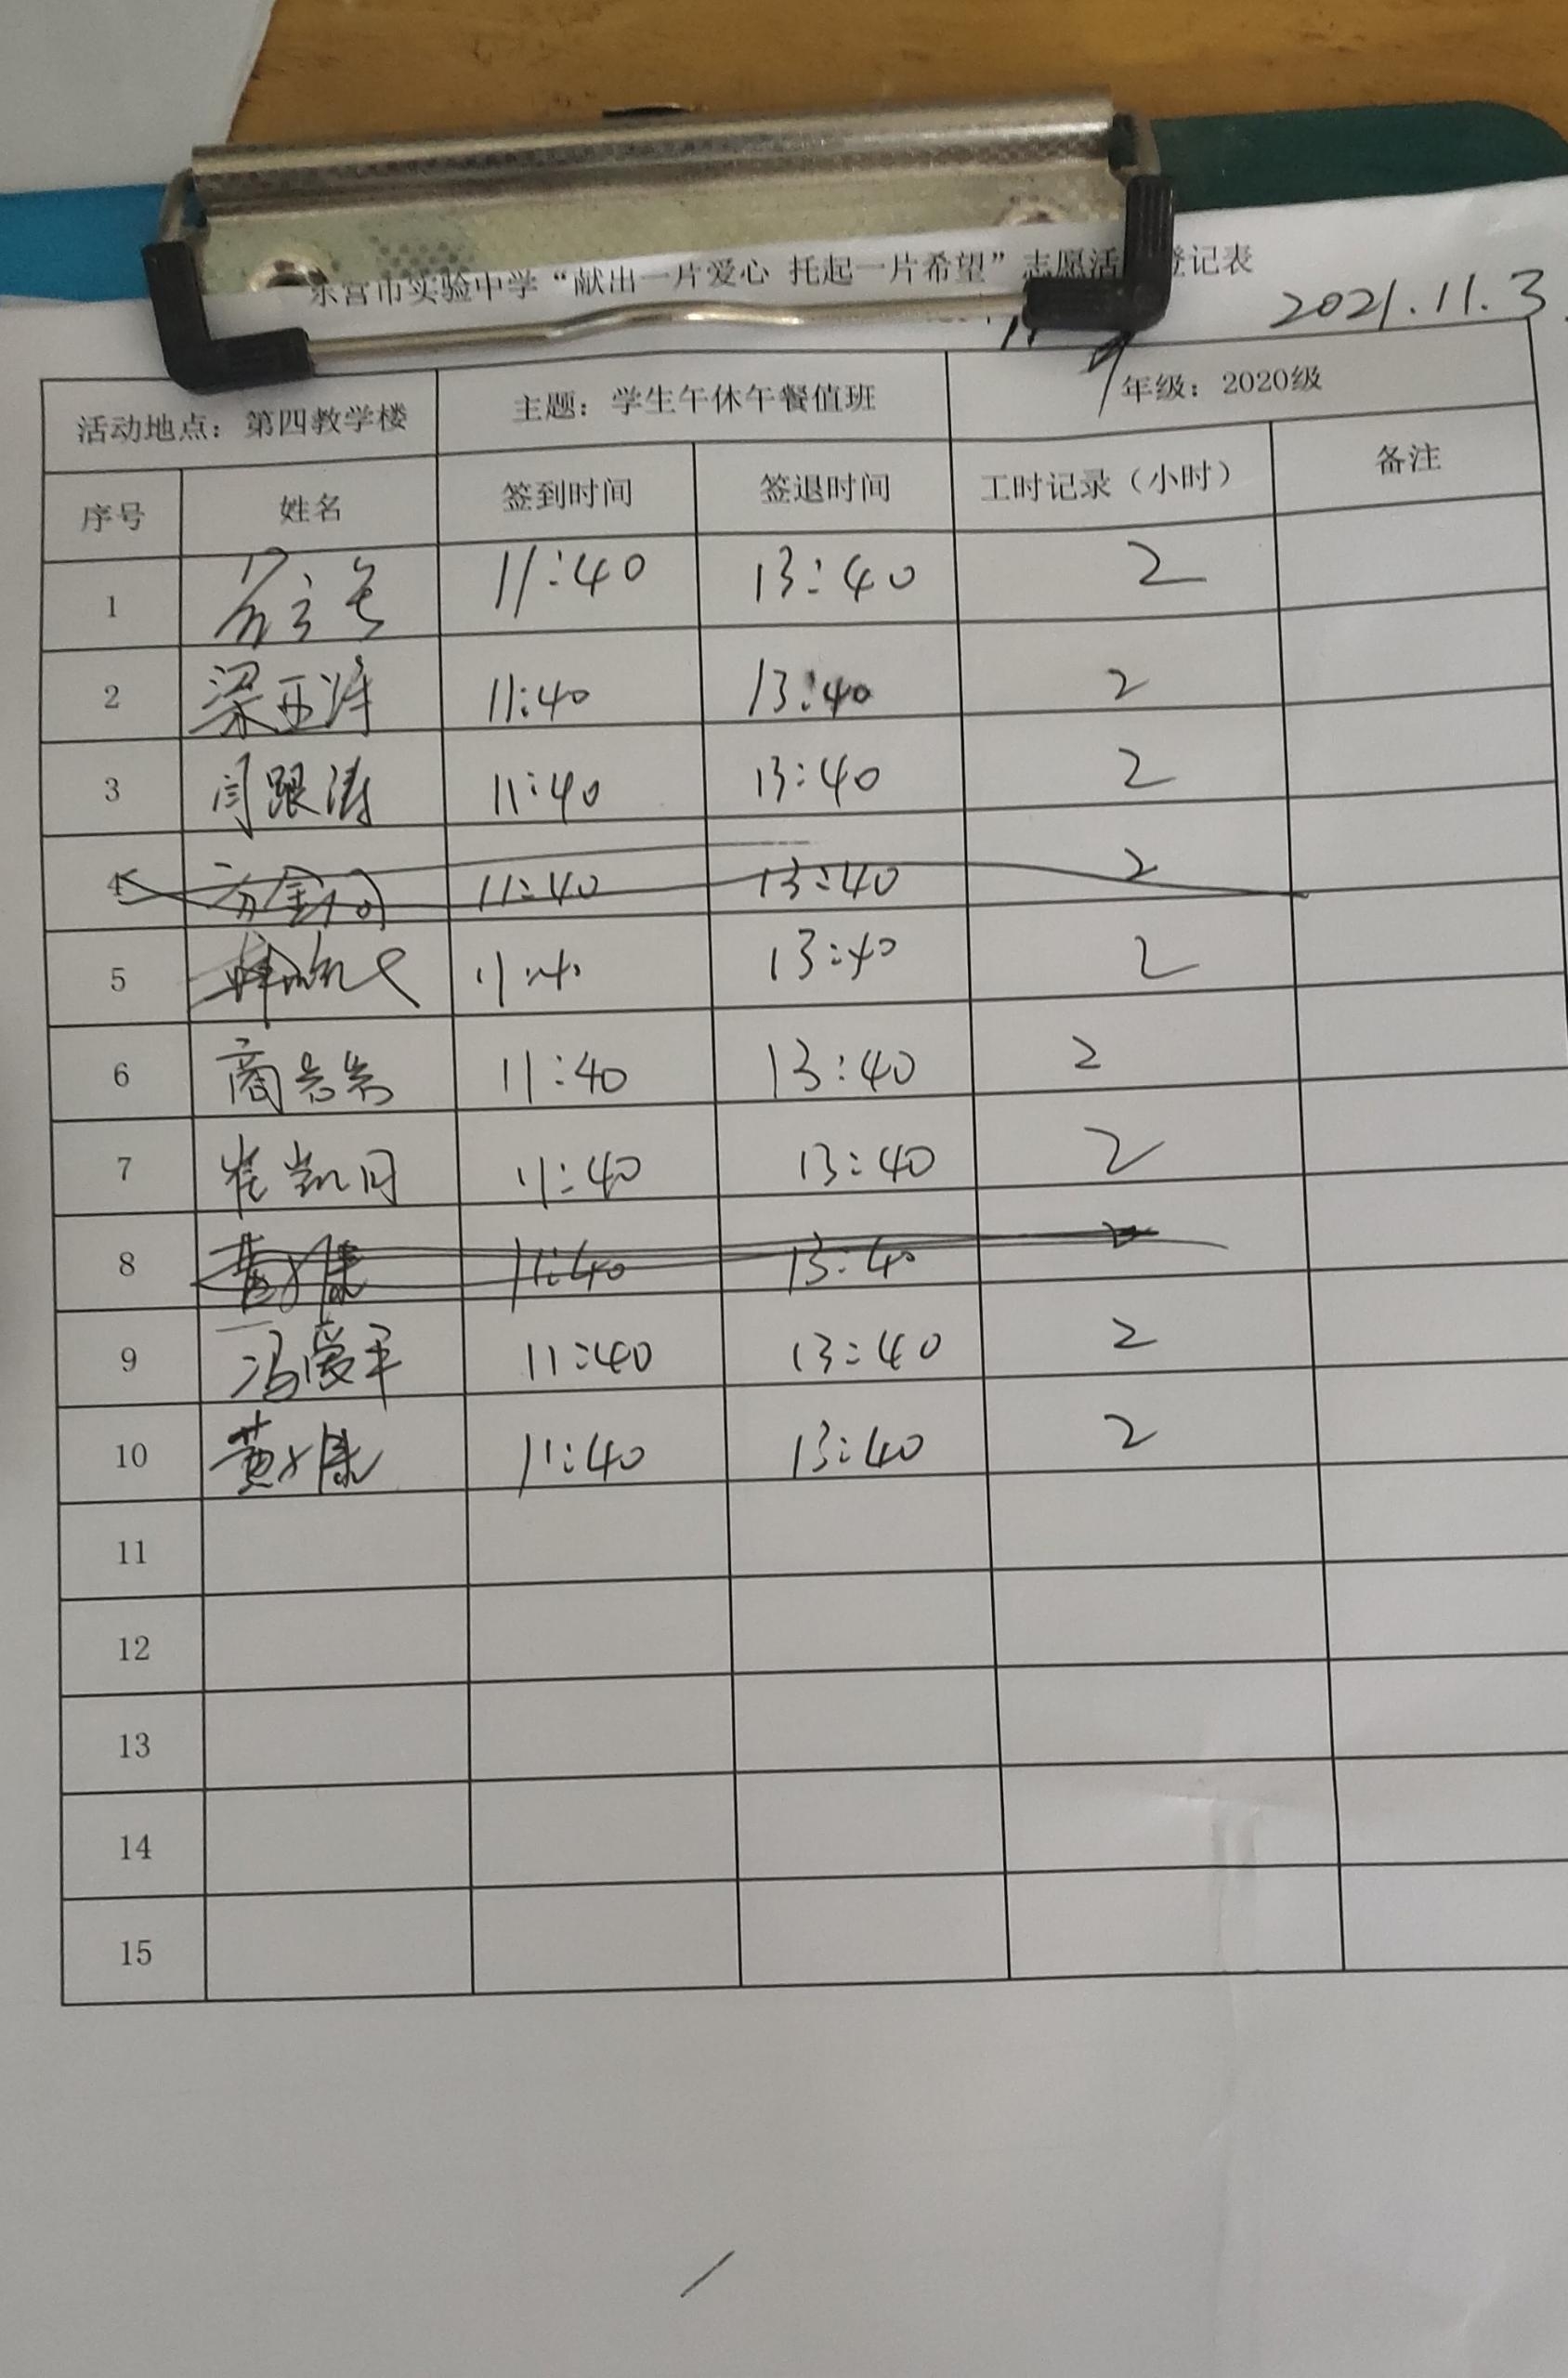 市实验中学“献出一片爱心 托起一片希望”志愿活 登记表
2021.11.3
活动地点：第四教学楼 主题：学生午休午餐值班 年级：2020级
序号 姓名 签到时间 签退时间 工时记录（小时） 备注
1 11:40 13:40 2
2 梁亚 11:40 13:40 2
3 闫跟涛 11:40 13:40 2
4 11:40 13:40 2
5 11:40 13:40 2
6 商 11:40 13:40 2
7 崔凯月 11:40 13:40 2
8 11:40 13:40 2
9 冯爱平 11:40 13:40 2
10 黄 康 11:40 13:40 2
11
12
13
14
15